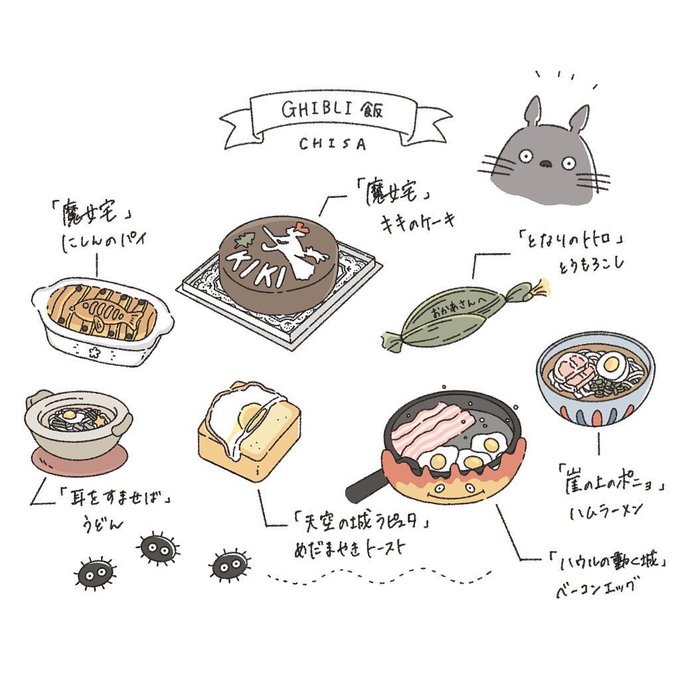 GHIBLI 飯
CHISA
「魔女宅」
にしんのパイ
「魔女宅」
キキのケーキ
KIKI
「となりのトトロ」
とうもろこし
おかあさんへ
「耳をすませば」
うどん
「天空の城ラピュタ」
めだまやきトースト
「崖の上のポニョ」
ハムラーメン
「ハウルの動く城」
ベーコンエッグ